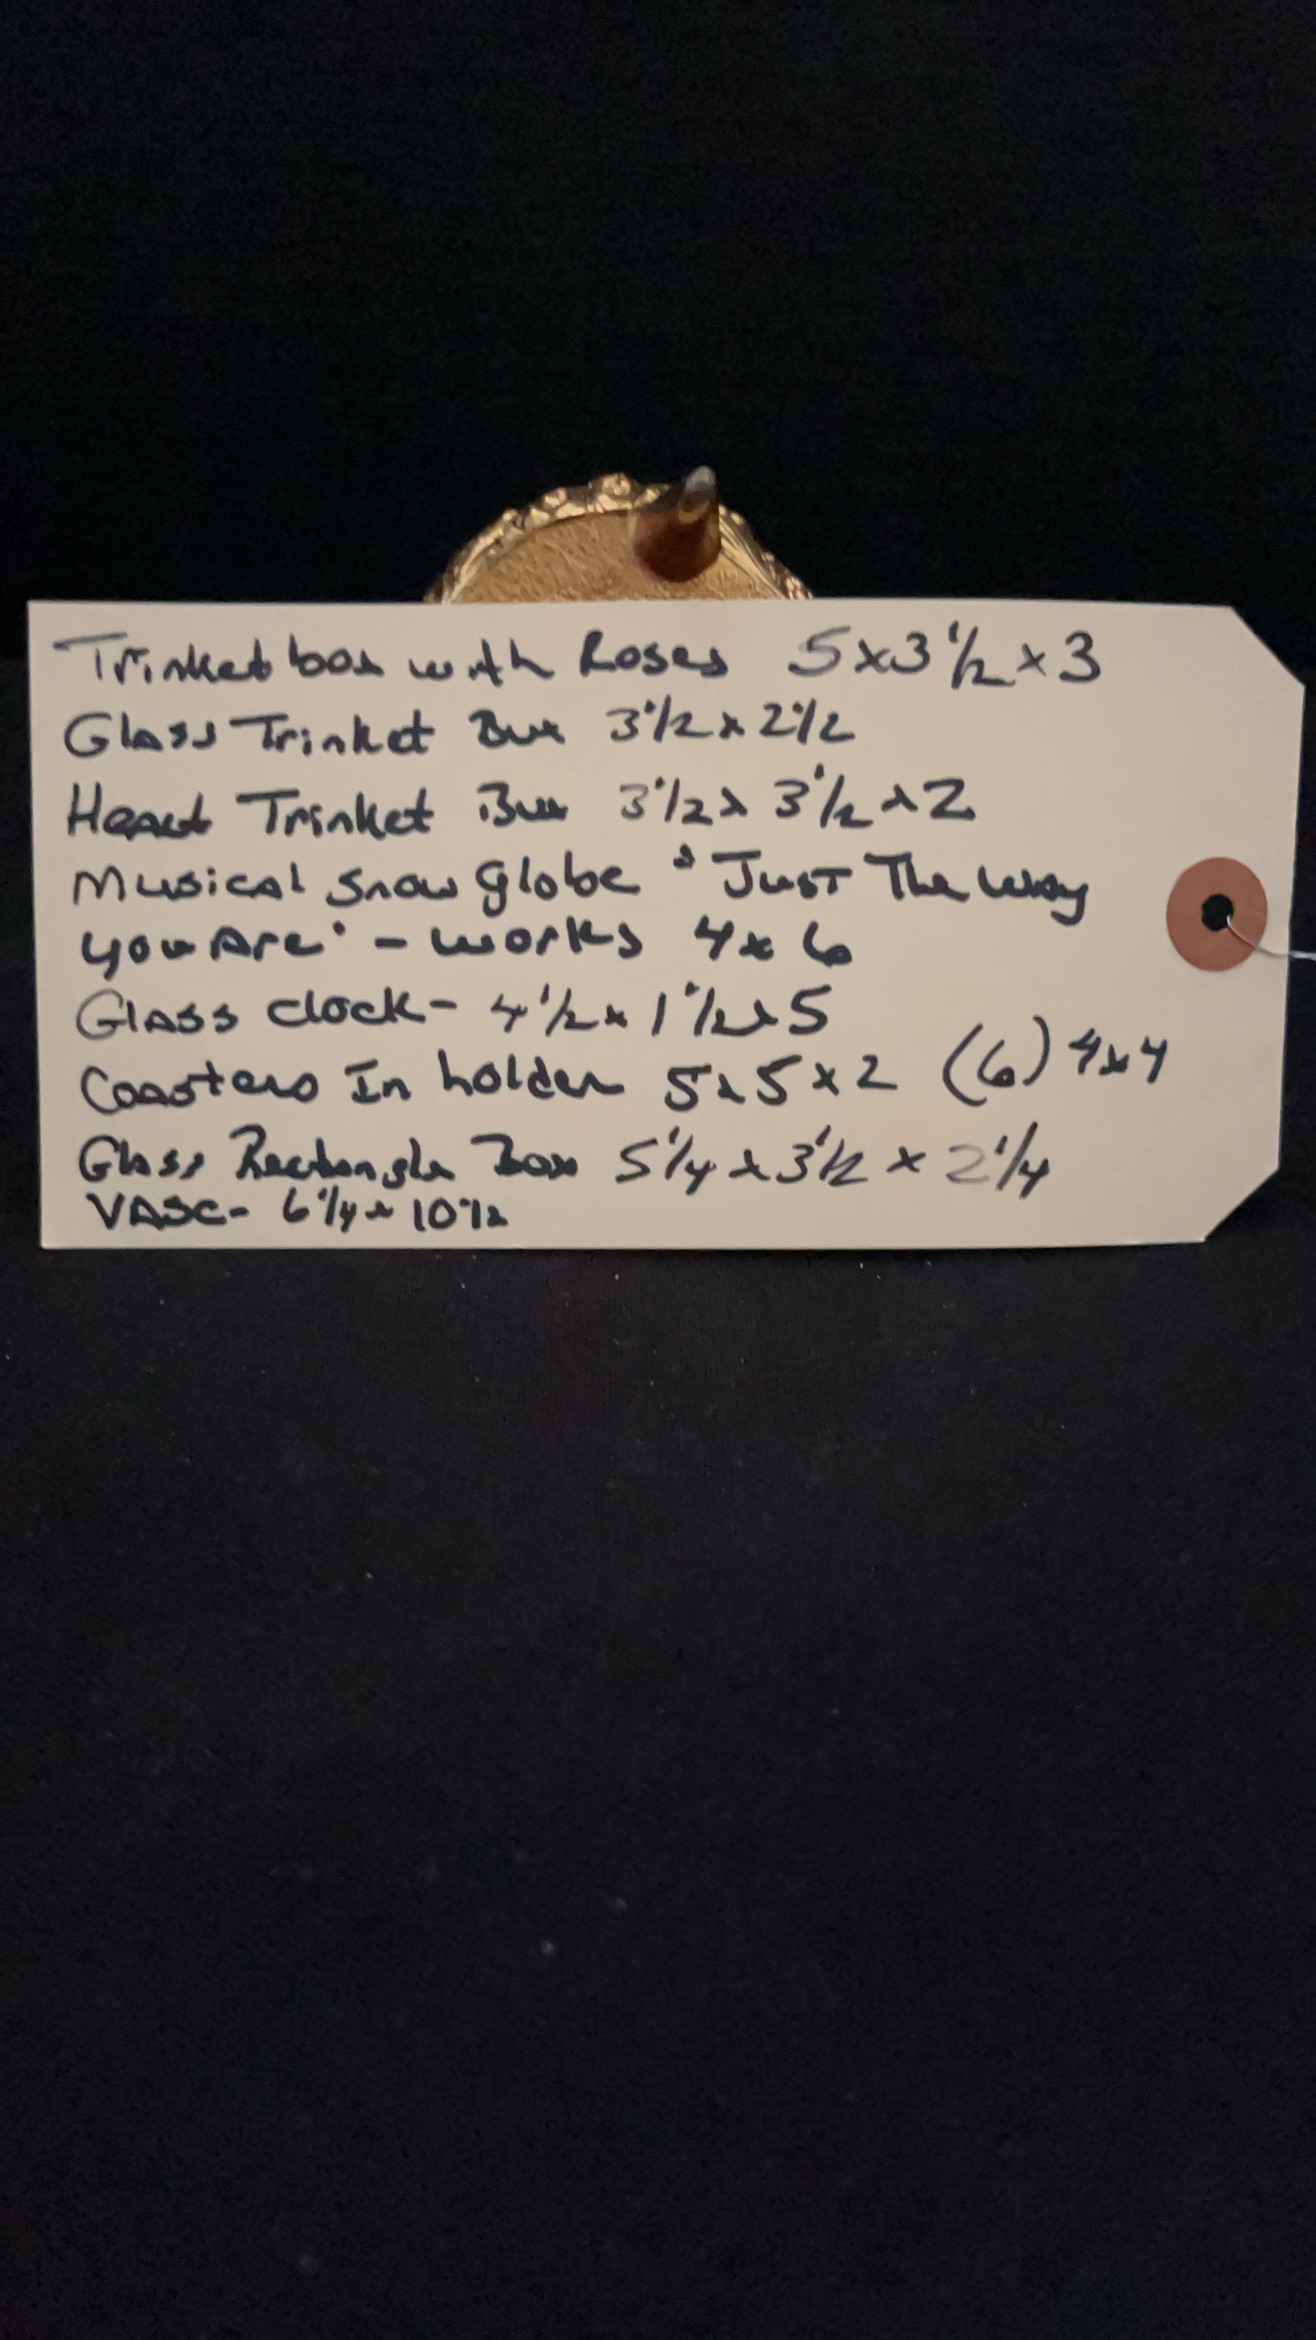 Trinket box with Roses 5x3 1/2 x 3
Glass Trinket Box 3 1/2 x 2 1/2
Heart Trinket Box 3 1/2 x 3 1/2 x 2
Musical snow globe "Just The Way
you Are" - works 4x6
Glass clock - 4 1/2 x 1 1/2 x 5
Coasters In holder 5x5x2 (6) 4x4
Glass Rectangle Box 5 1/4 x 3 1/2 x 2 1/4
VASE - 6 1/4 x 10 1/2